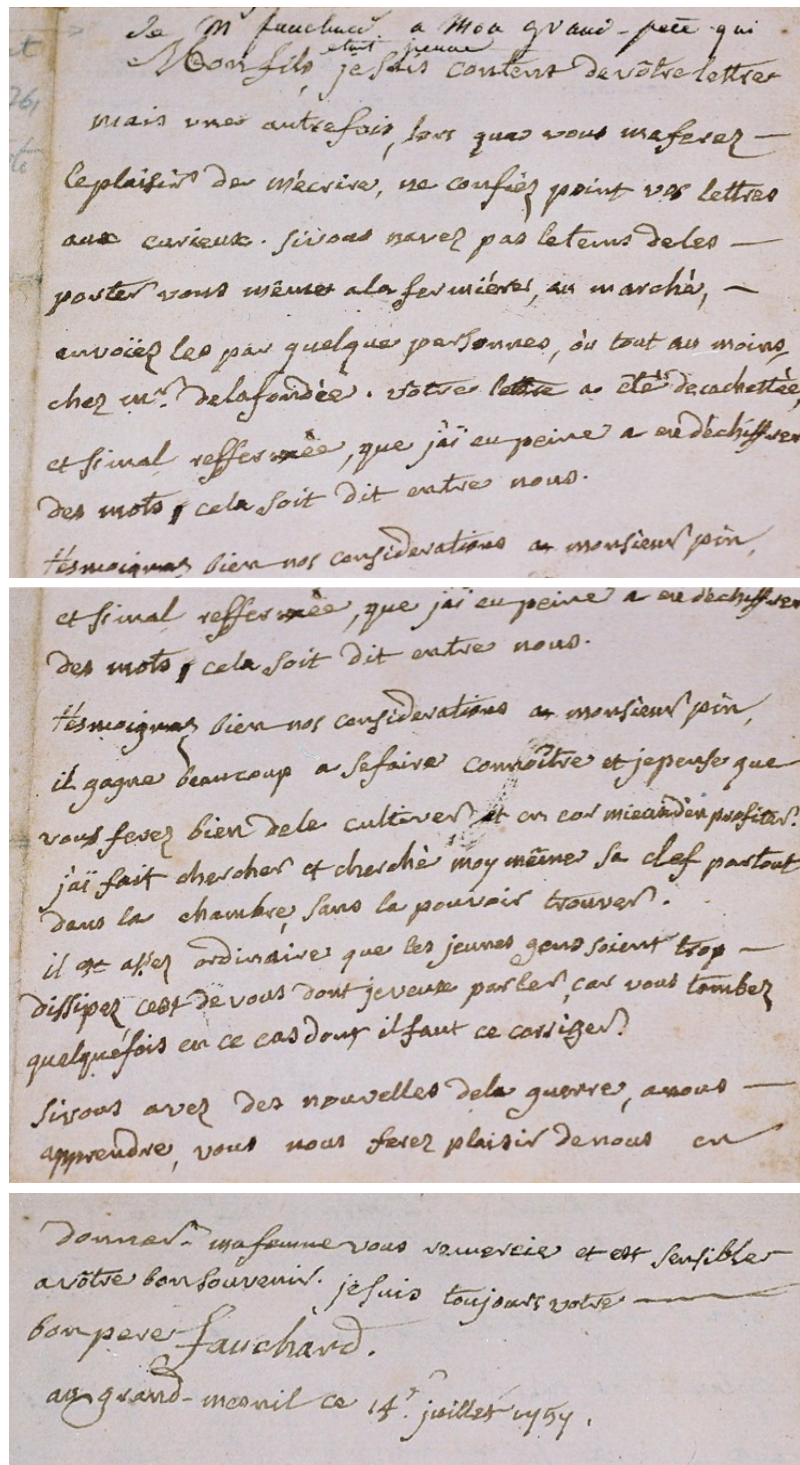 De Mr fauchard a Mon grand-pere qui
etoit jeune
Mon fils, je suis content de vôtre lettre
mais une autrefois, lors que vous maferez —
le plaisir de m'écrire, ne confiéz point vos lettres
aux curieux. sivous navez pas letems deles —
porter vous même a la fermiére, au marché, —
envoïez les par quelque personnes, òu tout au moins,
chez mr. delafondée. votre lettre a été decachettée,
et simal refferméé, que j'ai eu peine a en déchiffrer
des mots, cela soit dit entre nous.
témoignez bien nos considerations a monsieur pin,
et simal refferméé, que j'ai eu peine a en déchiffrer
des mots, cela soit dit entre nous.
témoignez bien nos considerations a monsieur pin,
il gagne beaucoup a sefaire connoître et jepense que
vous ferez bien dele cultiver et en cor mieux d'en profiter.
j'aï fait chercher et cherché moy même sa clef partout
dans la chambre, sans la pouvoir trouver.
il est assez ordinaire que les jeunes gens soient trop —
dissipez cest de vous dont jeveux parler, car vous tombez
quelquéfois en ce cas dont il faut ce corriger.
sivous avez des nouvelles dela guerre, anous —
apprendre, vous nous ferez plaisir denous en
donner. mafemme vous remercie et est sensible
a vôtre bon souvenir. je suis toujours votre —
bon pere fauchard.
au grand-mesnil ce 14e. juillet 1757.